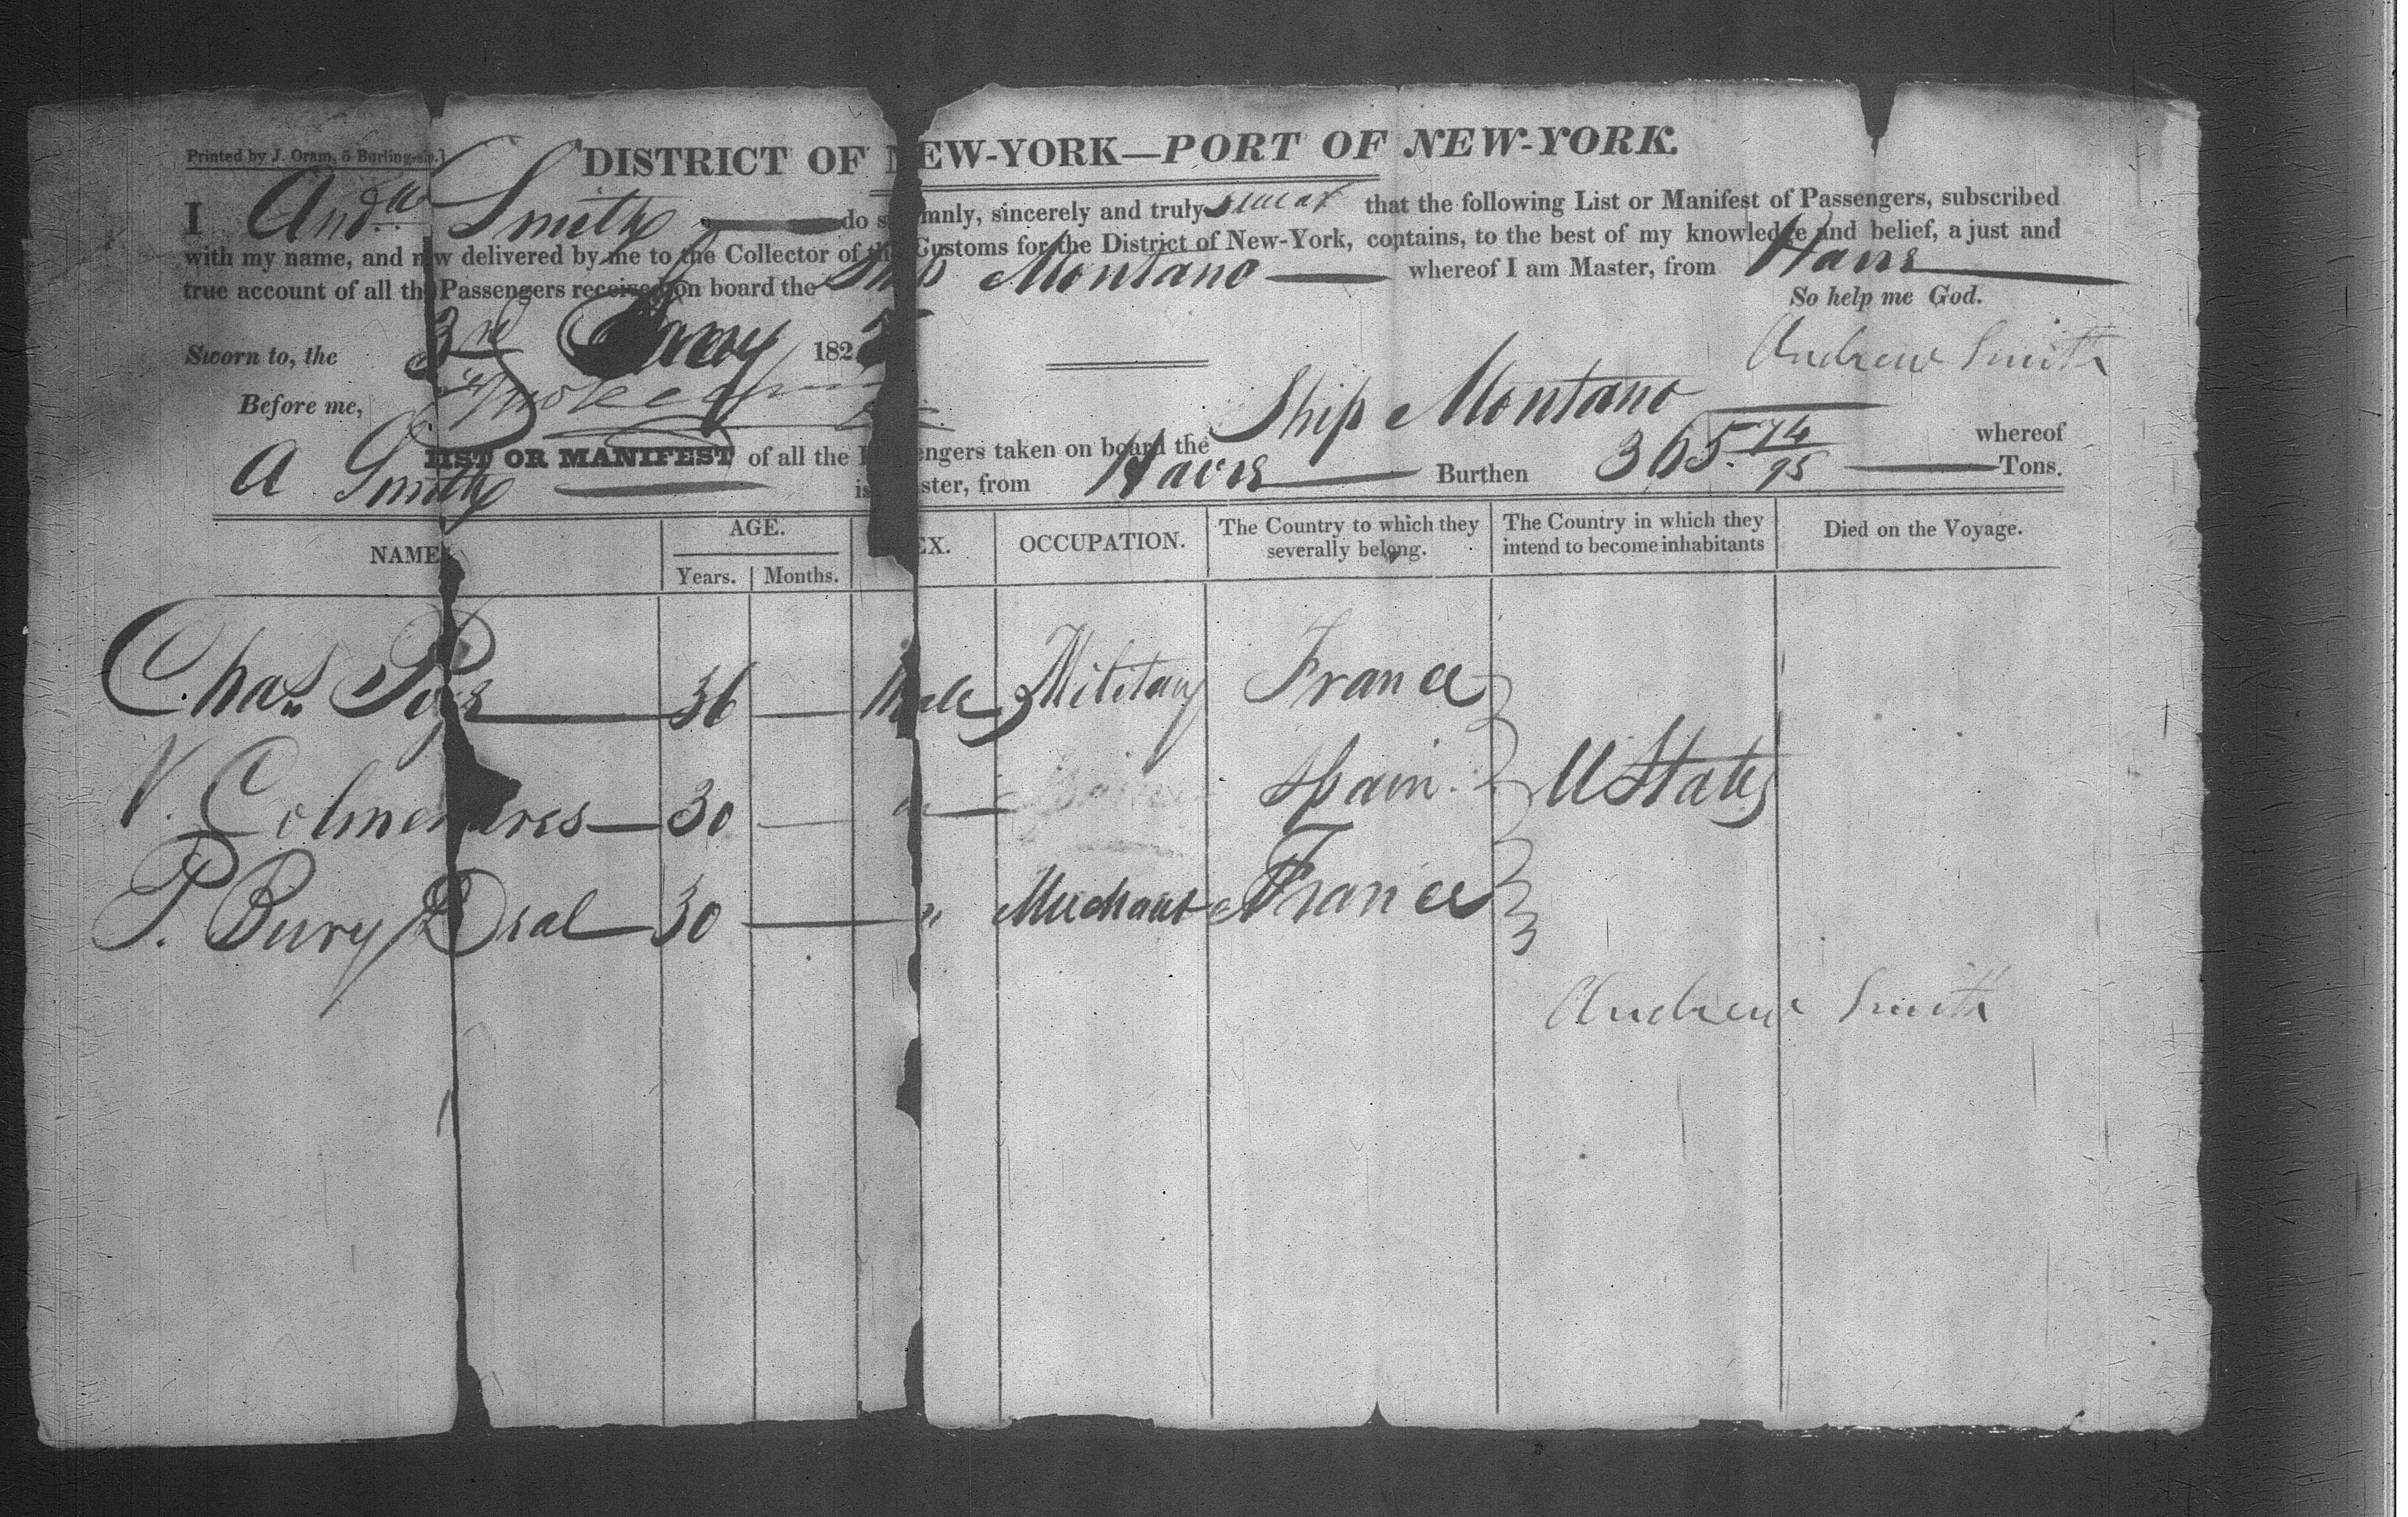 Printed by J. Oram, 5 Burling-slip.]
DISTRICT OF NEW-YORK—PORT OF NEW-YORK.
I Andw Smith do solemnly, sincerely and truly swear that the following List or Manifest of Passengers, subscribed
with my name, and now delivered by me to the Collector of the Customs for the District of New-York, contains, to the best of my knowledge and belief, a just and
true account of all the Passengers received on board the Ship Montano whereof I am Master, from Havre
So help me God.
Sworn to, the 3rd Jany 182
Andrew Smith
Before me,
LIST OR MANIFEST of all the Passengers taken on board the Ship Montano whereof
A Smith is Master, from Havre Burthen 365 74/95 Tons.
NAME AGE. SEX. OCCUPATION. The Country to which they severally belong. The Country in which they intend to become inhabitants Died on the Voyage.
Years. Months.
Chas. 36 Male Military France
V. Colmenares 30 Spain. U States
P. Bury 30 " Merchant France
Andrew Smith